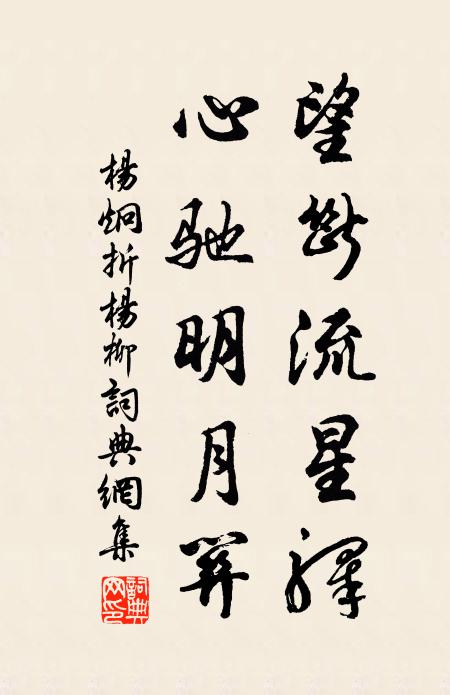 望斷流星驛
心馳明月關
楊炯折楊柳詞典網集
詞典网印